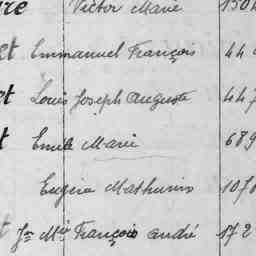 re Victor Marie 1504
et Emmanuel François 44
et Louis Joseph Auguste 447
t Emile Marie 689
Eugène Mathurin 1070
t Jn Mie François André 172